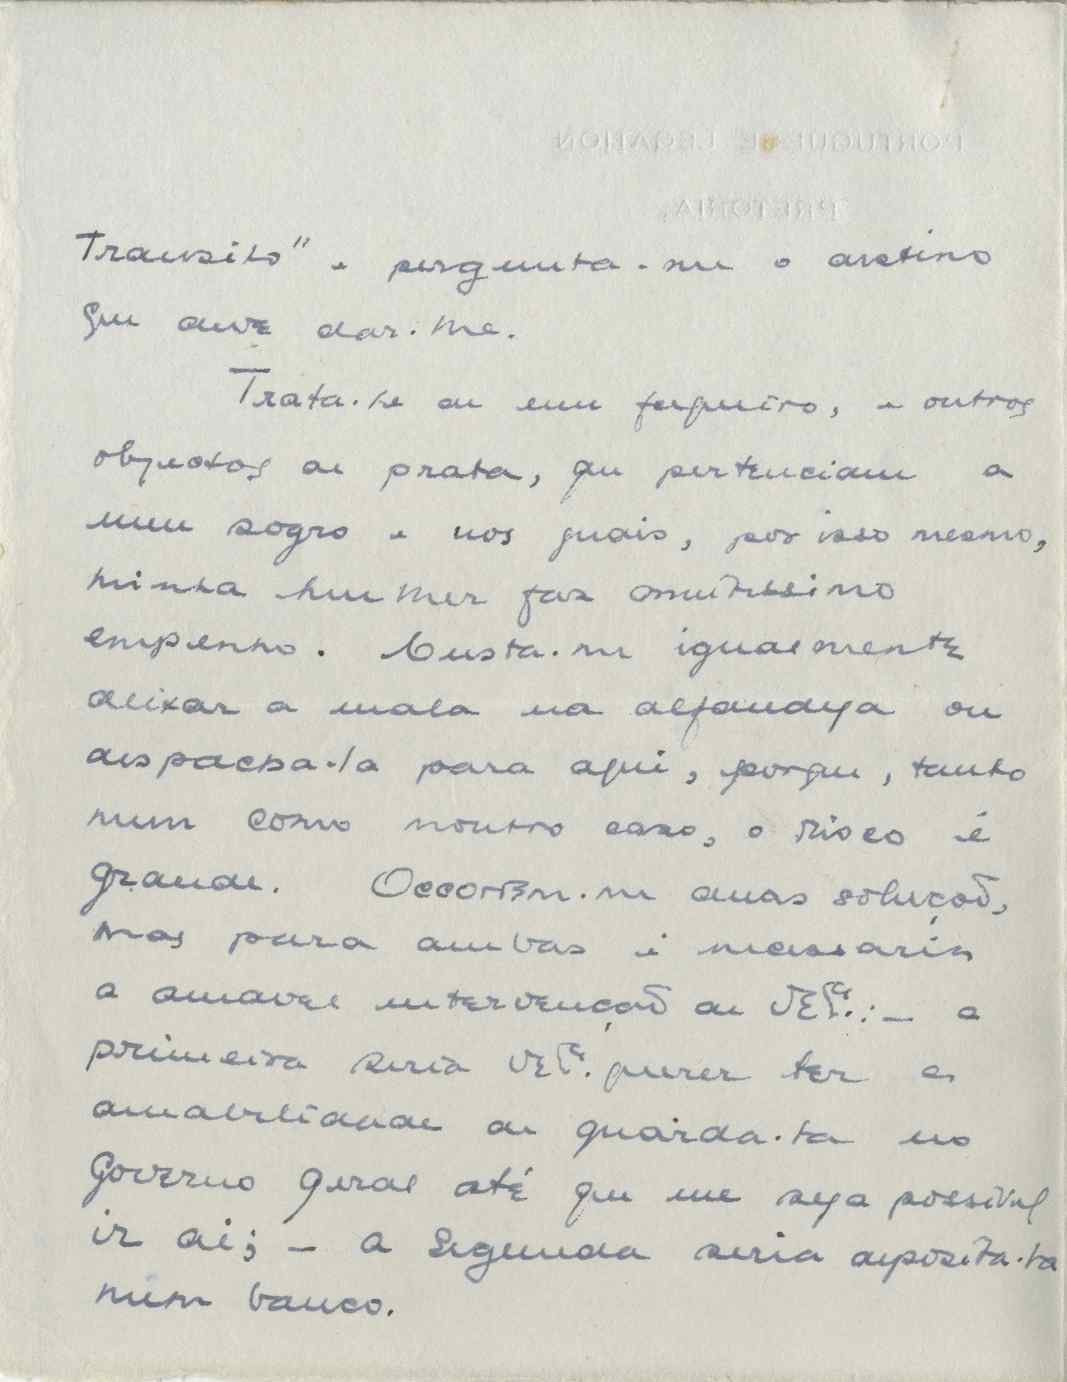 PORTUGUESE LEGATION
PRETORIA.
Transito" e pergunta-me o destino
que deve dar-me.
Trata-se de um faqueiro, e outros
objectos de prata, que pertenciam a
meu sogro e nos quais, por isso mesmo,
minha mulher faz muitissimo
empenho. Custa-me igualmente
deixar a mala na alfandega ou
despacha-la para aqui, porque, tanto
num como noutro caso, o risco é
grande. Occorrem-me duas soluções,
mas para ambas é necessaria
a amavel intervenção de V.Exª.: — a
primeira seria V.Exª. querer ter a
amabilidade de guarda-la no
Governo Geral até que me seja possivel
ir aí; — a segunda seria deposita-la
num banco.